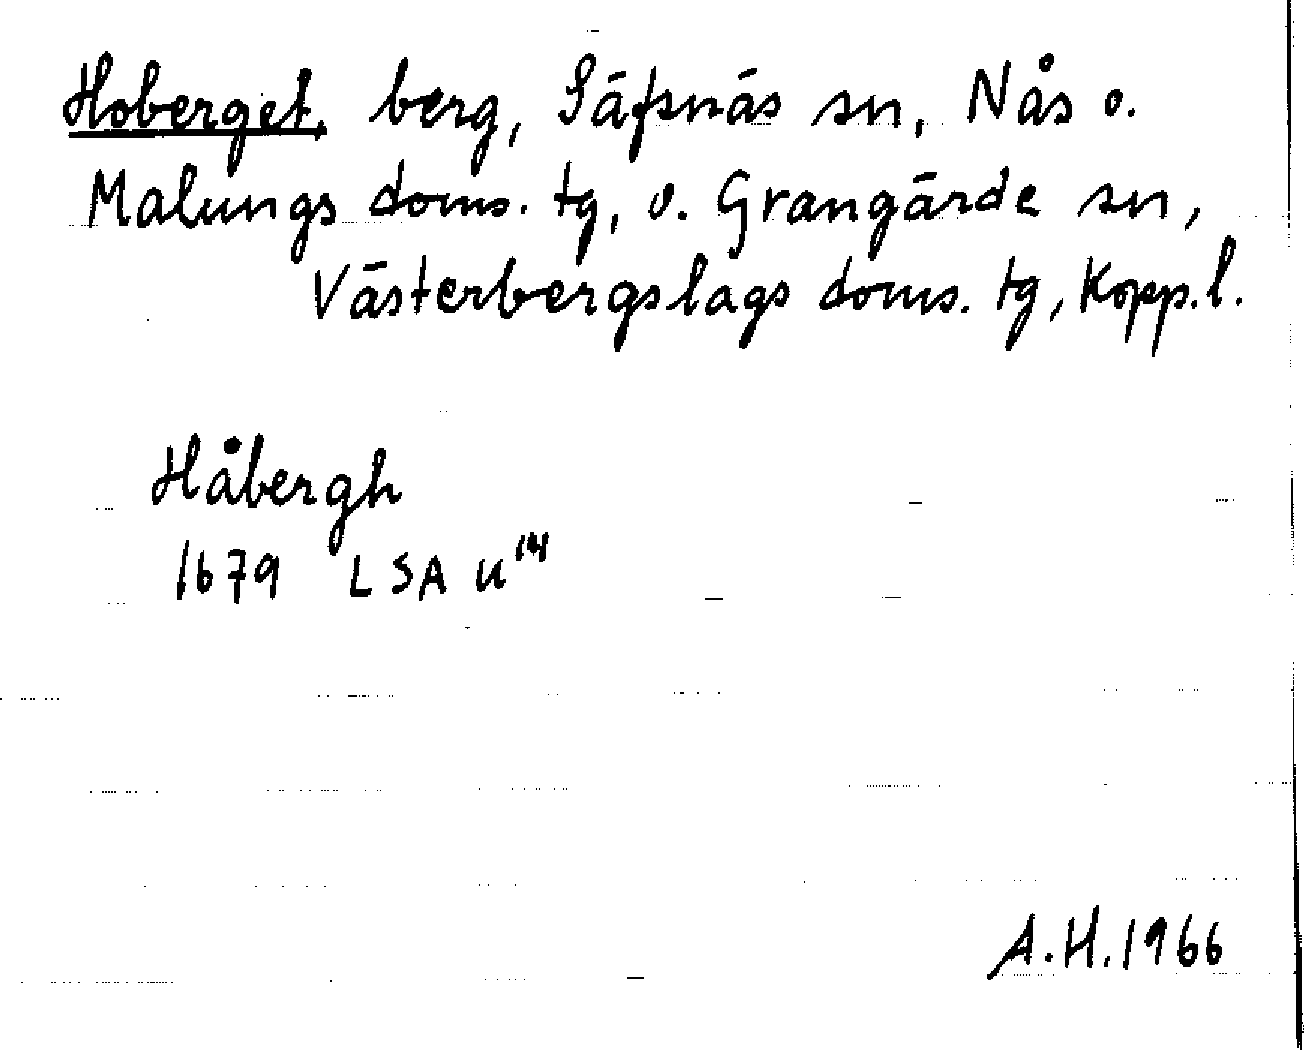 Hoberget, berg, Säfsnäs sn, Nås o.
Malungs doms. tg, o. Grangärde sn,
Västerbergslags doms. tg, Kopp. l.
Håbergh
1679 LSA U¹⁴
A.H. 1966